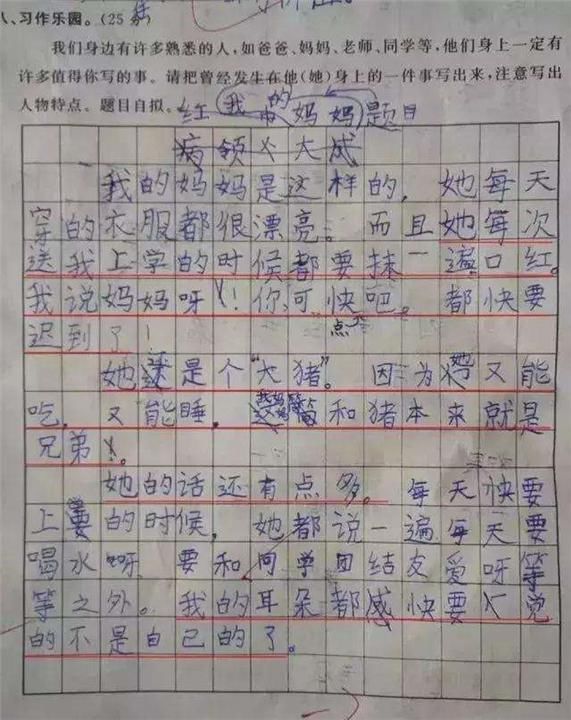 八、习作乐园。(25分
我们身边有许多熟悉的人,如爸爸、妈妈、老师、同学等,他们身上一定有
许多值得你写的事。请把曾经发生在他(她)身上的一件事写出来,注意写出
人物特点。题目自拟。
我的妈妈
题目
我的妈妈是这样的,她每天
穿的衣服都很漂亮。而且她每次
送我上学的时候都要抹一遍口红。
我说妈妈呀!你可快点吧。都快要
迟到了!
她还是个“大猪”。因为她又能
吃,又能睡,和猪本来就是
兄弟。
她的话还有点多。每天快要
上学的时候,她都说一遍每天要
喝水呀 要和同学团结友爱呀等
等之外。我的耳朵都感快要觉
的不是自己的了。